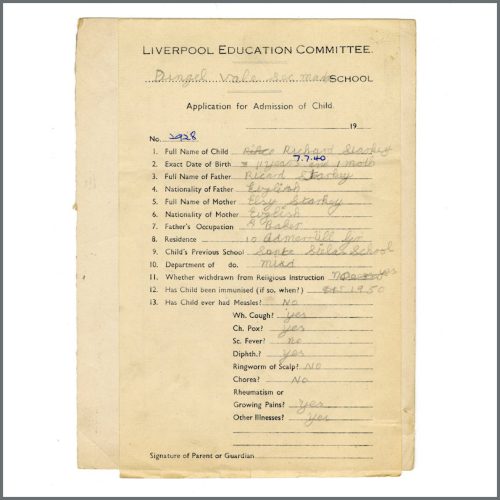 LIVERPOOL EDUCATION COMMITTEE.
Dingel Vale Sec Mode SCHOOL
Application for Admission of Child.
19
No. 2928
1. Full Name of Child Richard Starkey
2. Exact Date of Birth 11 years and 1 moth 7.7.40
3. Full Name of Father Ricard Starkey
4. Nationality of Father English
5. Full Name of Mother Elsy Starkey
6. Nationality of Mother English
7. Father's Occupation A Baker
8. Residence 10
9. Child's Previous School School
10. Department of do. Mixd
11. Whether withdrawn from Religious Instruction yes
12. Has Child been immunised (if so, when?) 1950
13. Has Child ever had Measles? No
Wh. Cough? yes
Ch. Pox? yes
Sc. Fever? no
Diphth.? yes
Ringworm of Scalp? No
Chorea? No
Rheumatism or
Growing Pains? Yes
Other Illnesses? Yes
Signature of Parent or Guardian